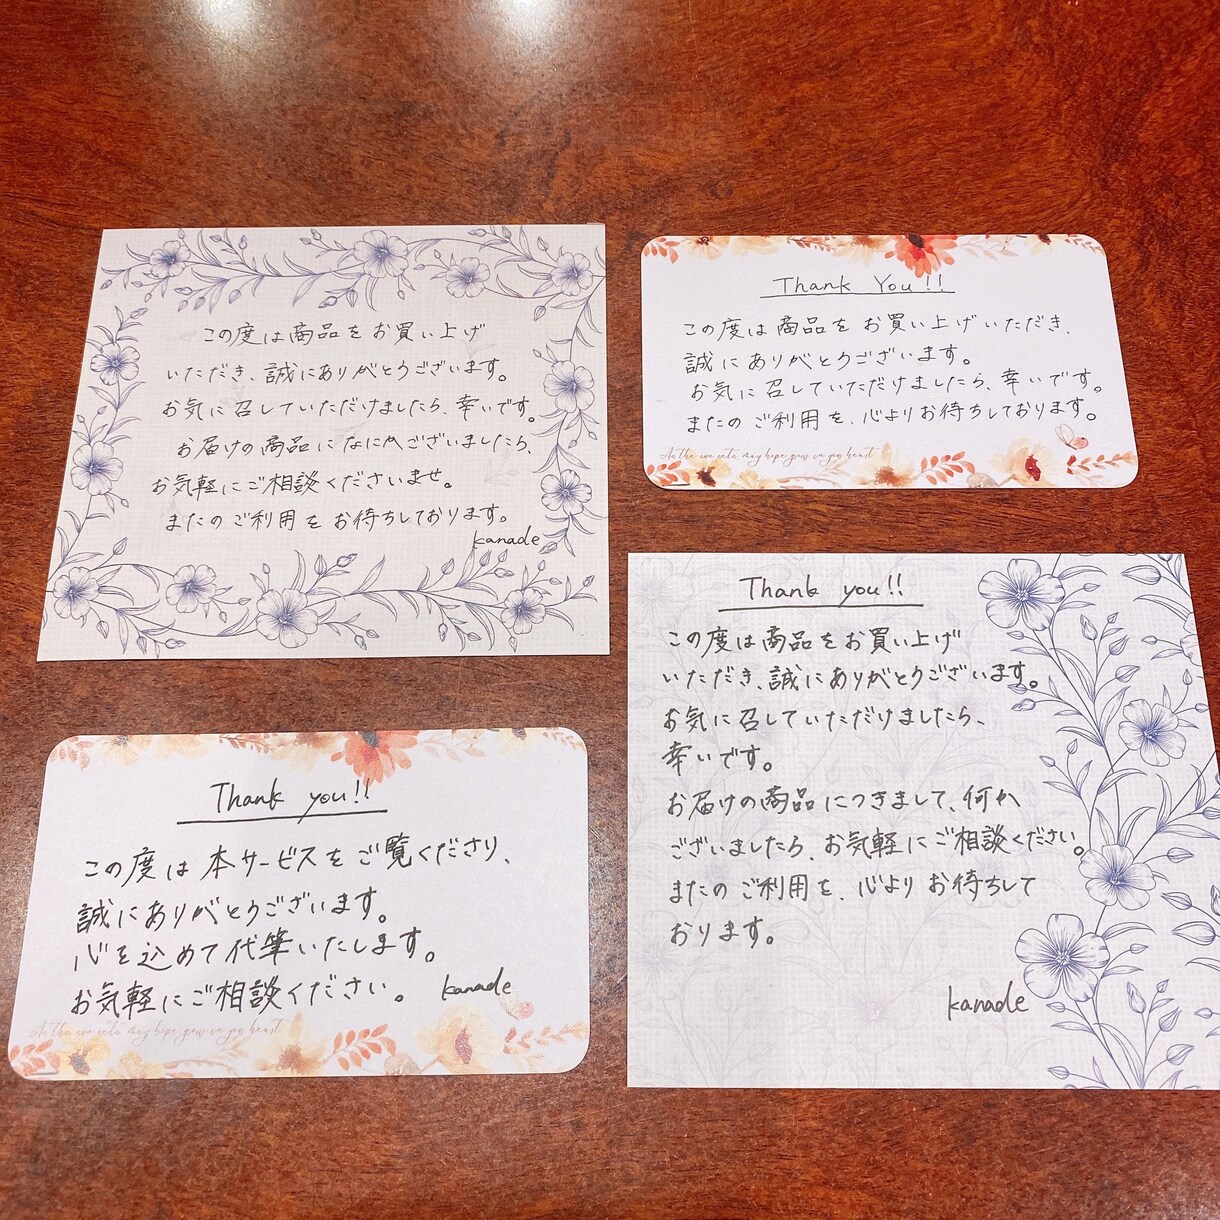 この度は商品をお買い上げ
いただき、誠にありがとうございます。
お気に召していただけましたら、幸いです。
お届けの商品になにかございましたら、
お気軽にご相談くださいませ。
またのご利用をお待ちしております。
kanade
Thank You!!
この度は商品をお買い上げいただき、
誠にありがとうございます。
お気に召していただけましたら、幸いです。
またのご利用を、心よりお待ちしております。
Thank you!!
この度は本サービスをご覧くださり、
誠にありがとうございます。
心を込めて代筆いたします。
お気軽にご相談ください。
kanade
Thank you!!
この度は商品をお買い上げ
いただき、誠にありがとうございます。
お気に召していただけましたら、
幸いです。
お届けの商品につきまして、何か
ございましたら、お気軽にご相談ください。
またのご利用を、心よりお待ちして
おります。
kanade